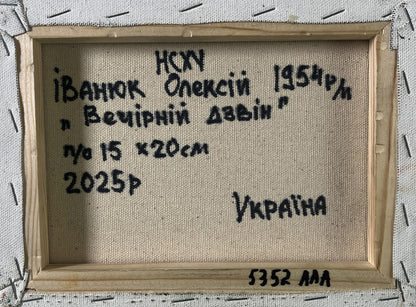 НСХУ
ІВАНЮК ОЛЕКСІЙ 1954 р/н
„ВЕЧІРНІЙ ДЗВІН"
п/о 15 x 20 см
2025р
УКРАЇНА
5352 ЛЛЛ